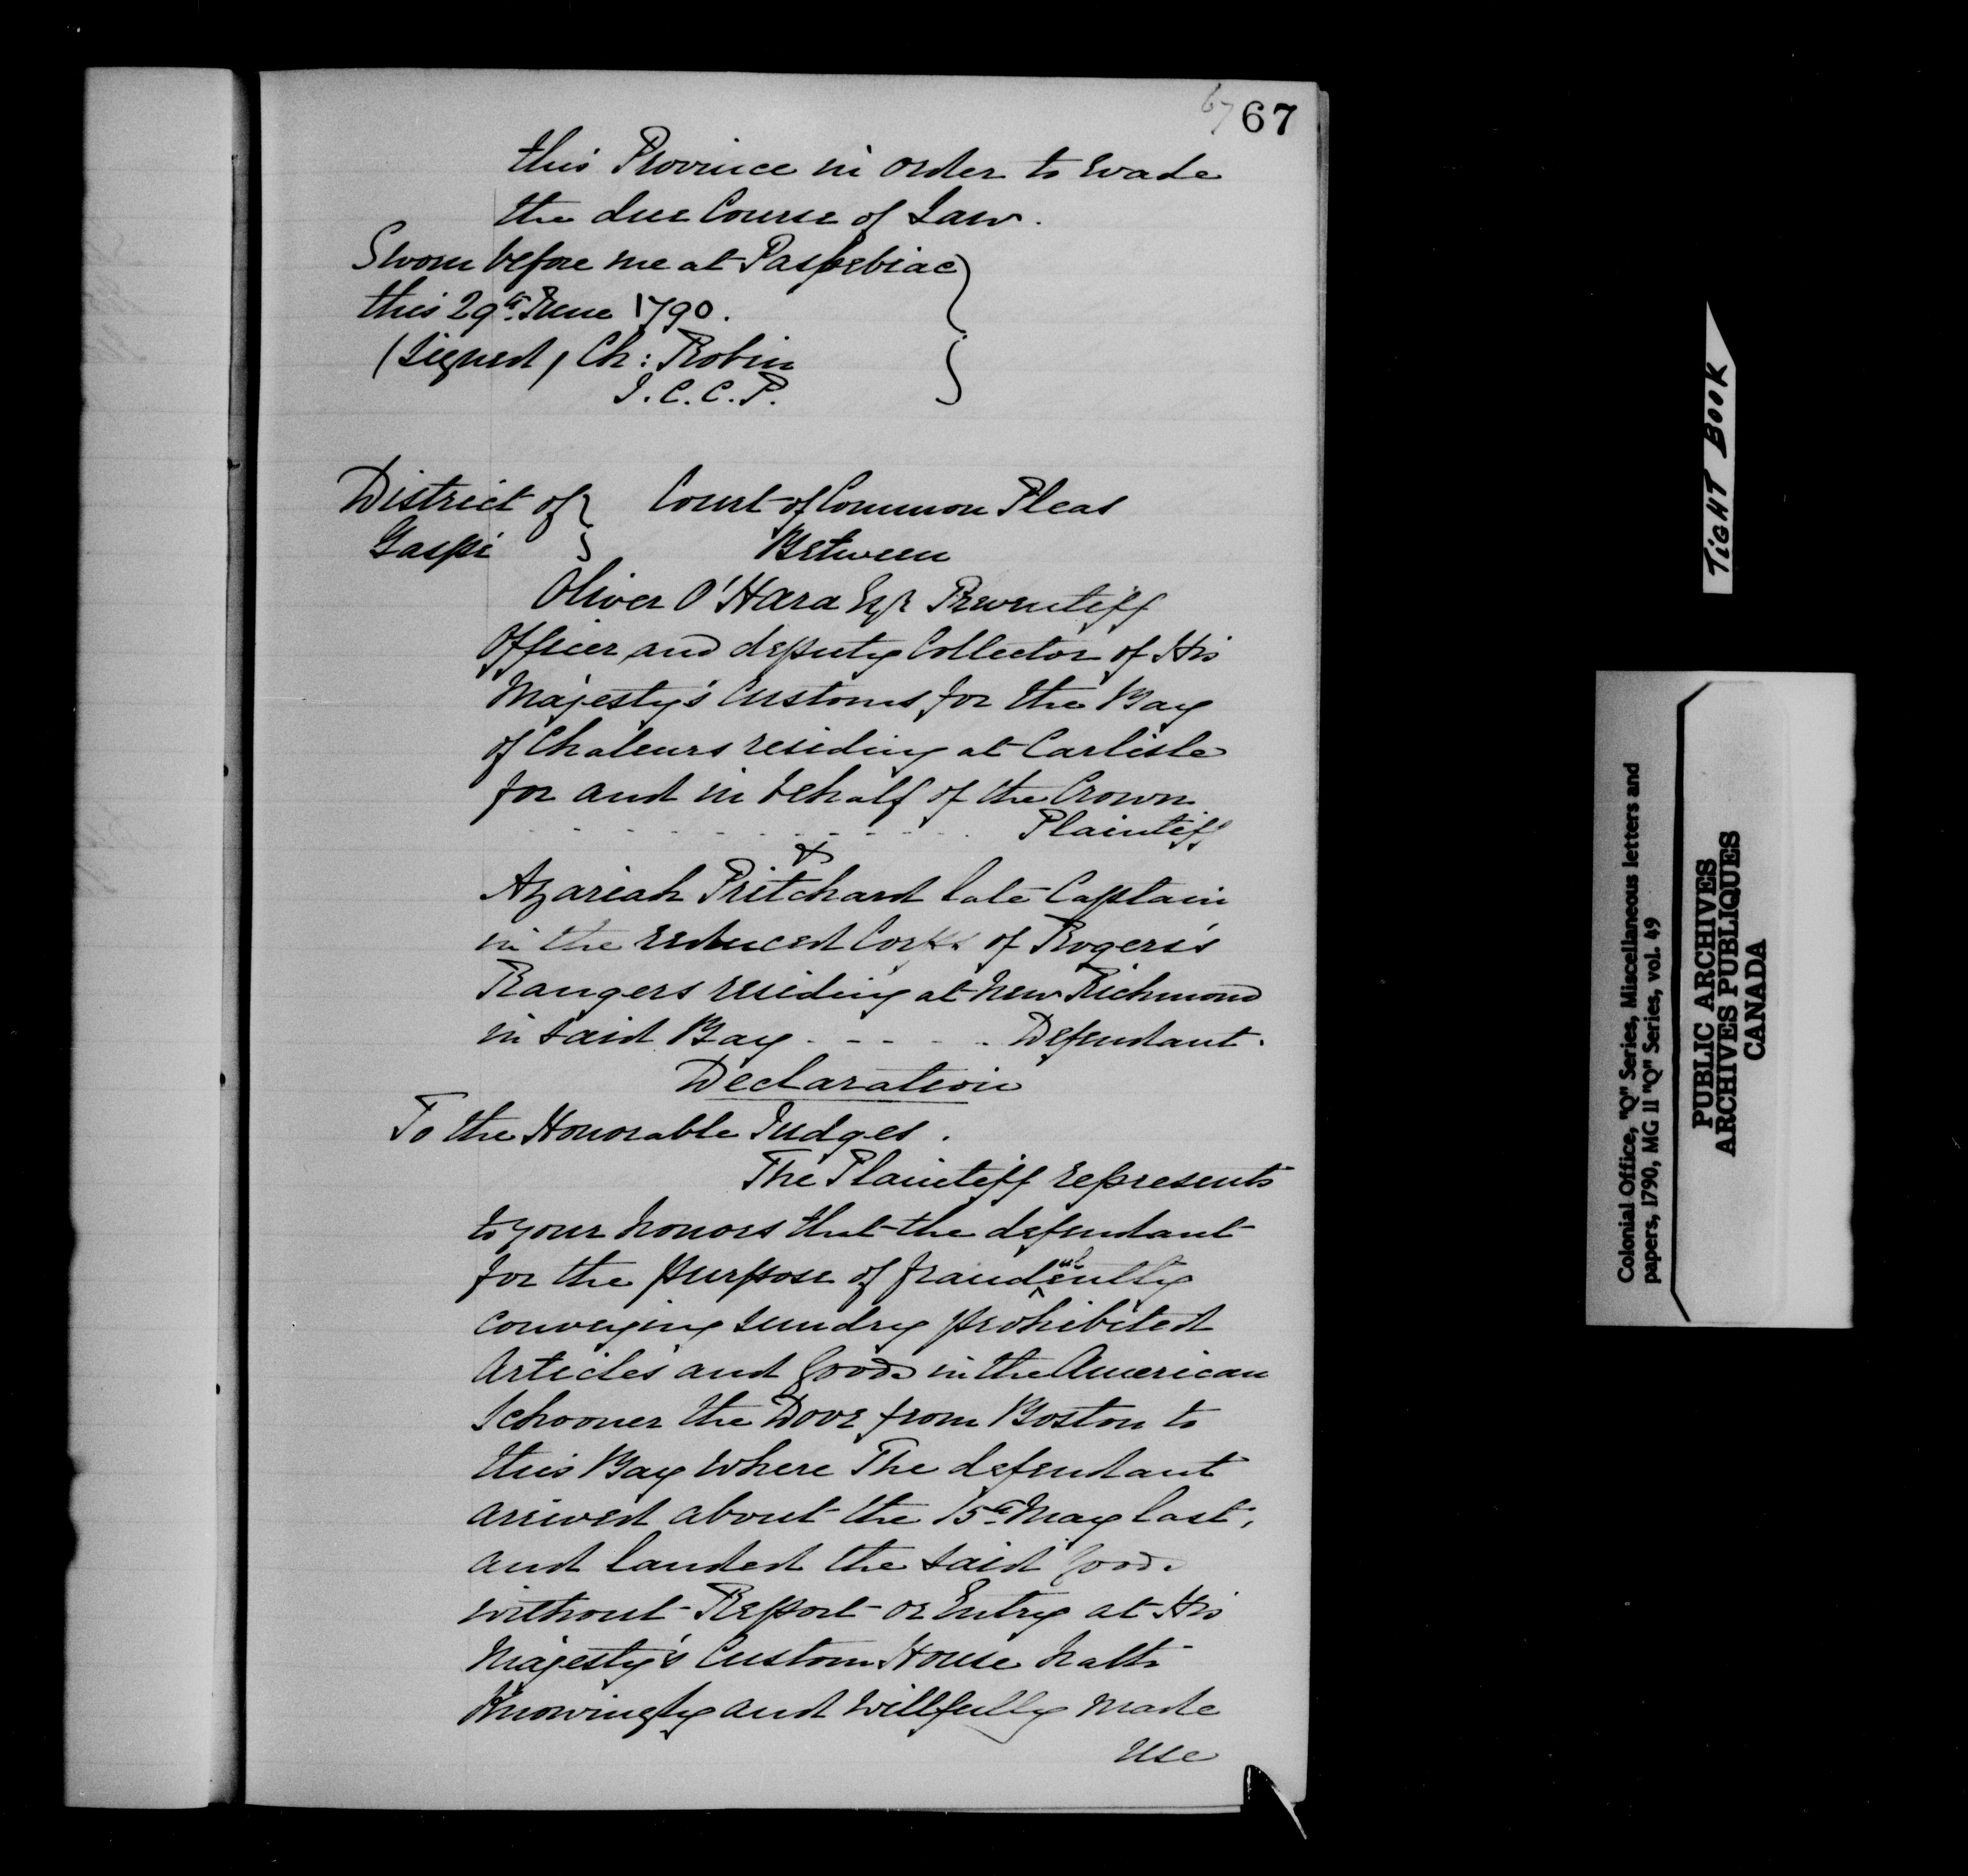 67 67
this Province in order to evade
the due Course of Law.
Sworn before me at Paspebiac
this 29th June 1790.
(signed) Ch: Robin
J.C.C.P.
District of Court of Common Pleas
Gaspé Between
Oliver O'Hara Esqr Preventiff
Officer and deputy Collector of His
Majesty's Customs for the Bay
of Chaleurs residing at Carlisle
for and in behalf of the Crown
- - - - - - - - - - Plaintiff
&
Azariah Pritchard late Captain
in the reduced Corps of Rogers's
Rangers residing at New Richmond
in said Bay - - - - - Defendant.
Declaration
To the Honorable Judges.
The Plaintiff represents
to your honors that the defendant
for the purpose of fraudulently
conveying sundry prohibited
Articles and Goods in the American
Schooner the Dove from Boston to
this Bay where The defendant
arrived about the 15th May last,
and landed the said Goods
without Report or Entry at His
Majesty's Custom House hath
Knowingly and willfully made
use
TIGHT BOOK
Colonial Office, "Q" Series, Miscellaneous letters and
papers, 1790, MG 11 "Q" Series, vol. 49
PUBLIC ARCHIVES
ARCHIVES PUBLIQUES
CANADA